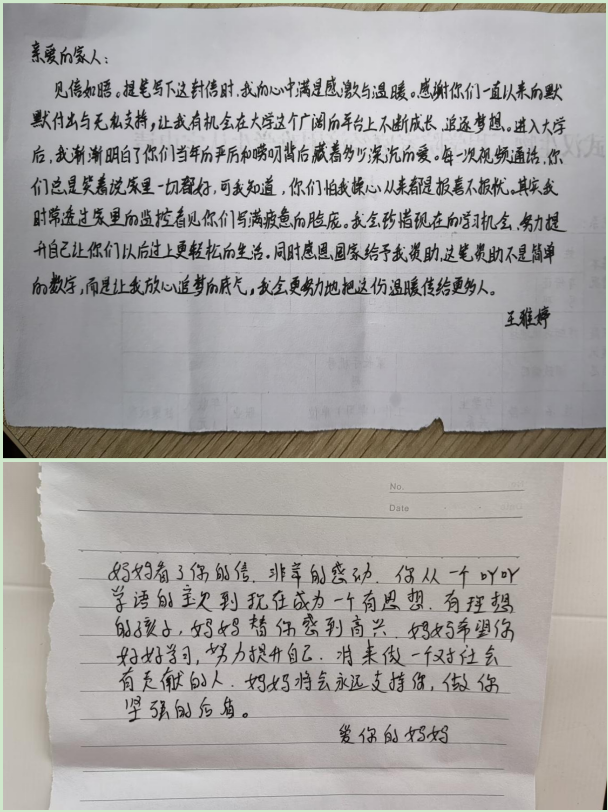 亲爱的家人：
见信如晤。提笔写下这封信时，我的心中满是感激与温暖。感谢你们一直以来的默
默付出与无私支持，让我有机会在大学这个广阔的平台上不断成长、追逐梦想。进入大学
后，我渐渐明白了你们当年的严厉和唠叨背后藏着多少深沉的爱。每一次视频通话，你
们总是笑着说家里一切都好，可我知道，你们怕我操心从来都是报喜不报忧。其实我
时常透过家里的监控看见你们写满疲意的脸庞。我会珍惜现在的学习机会、努力提
升自己让你们以后过上更轻松的生活。同时感恩国家给予我资助，这笔资助不是简单
的数字，而是让我放心追梦的底气，我会更努力地把这份温暖传给更多人。
王雅婷
No.
Date
妈妈看了你的信，非常的感动，你从一个吖吖
学语的到现在成为一个有思想，有理想
的孩子，妈妈替你感到高兴，妈妈希望你
好好学习，努力提升自己，将来做一个对社会
有贡献的人，妈妈将会永远支持你，做你
坚强的后盾。
爱你的妈妈